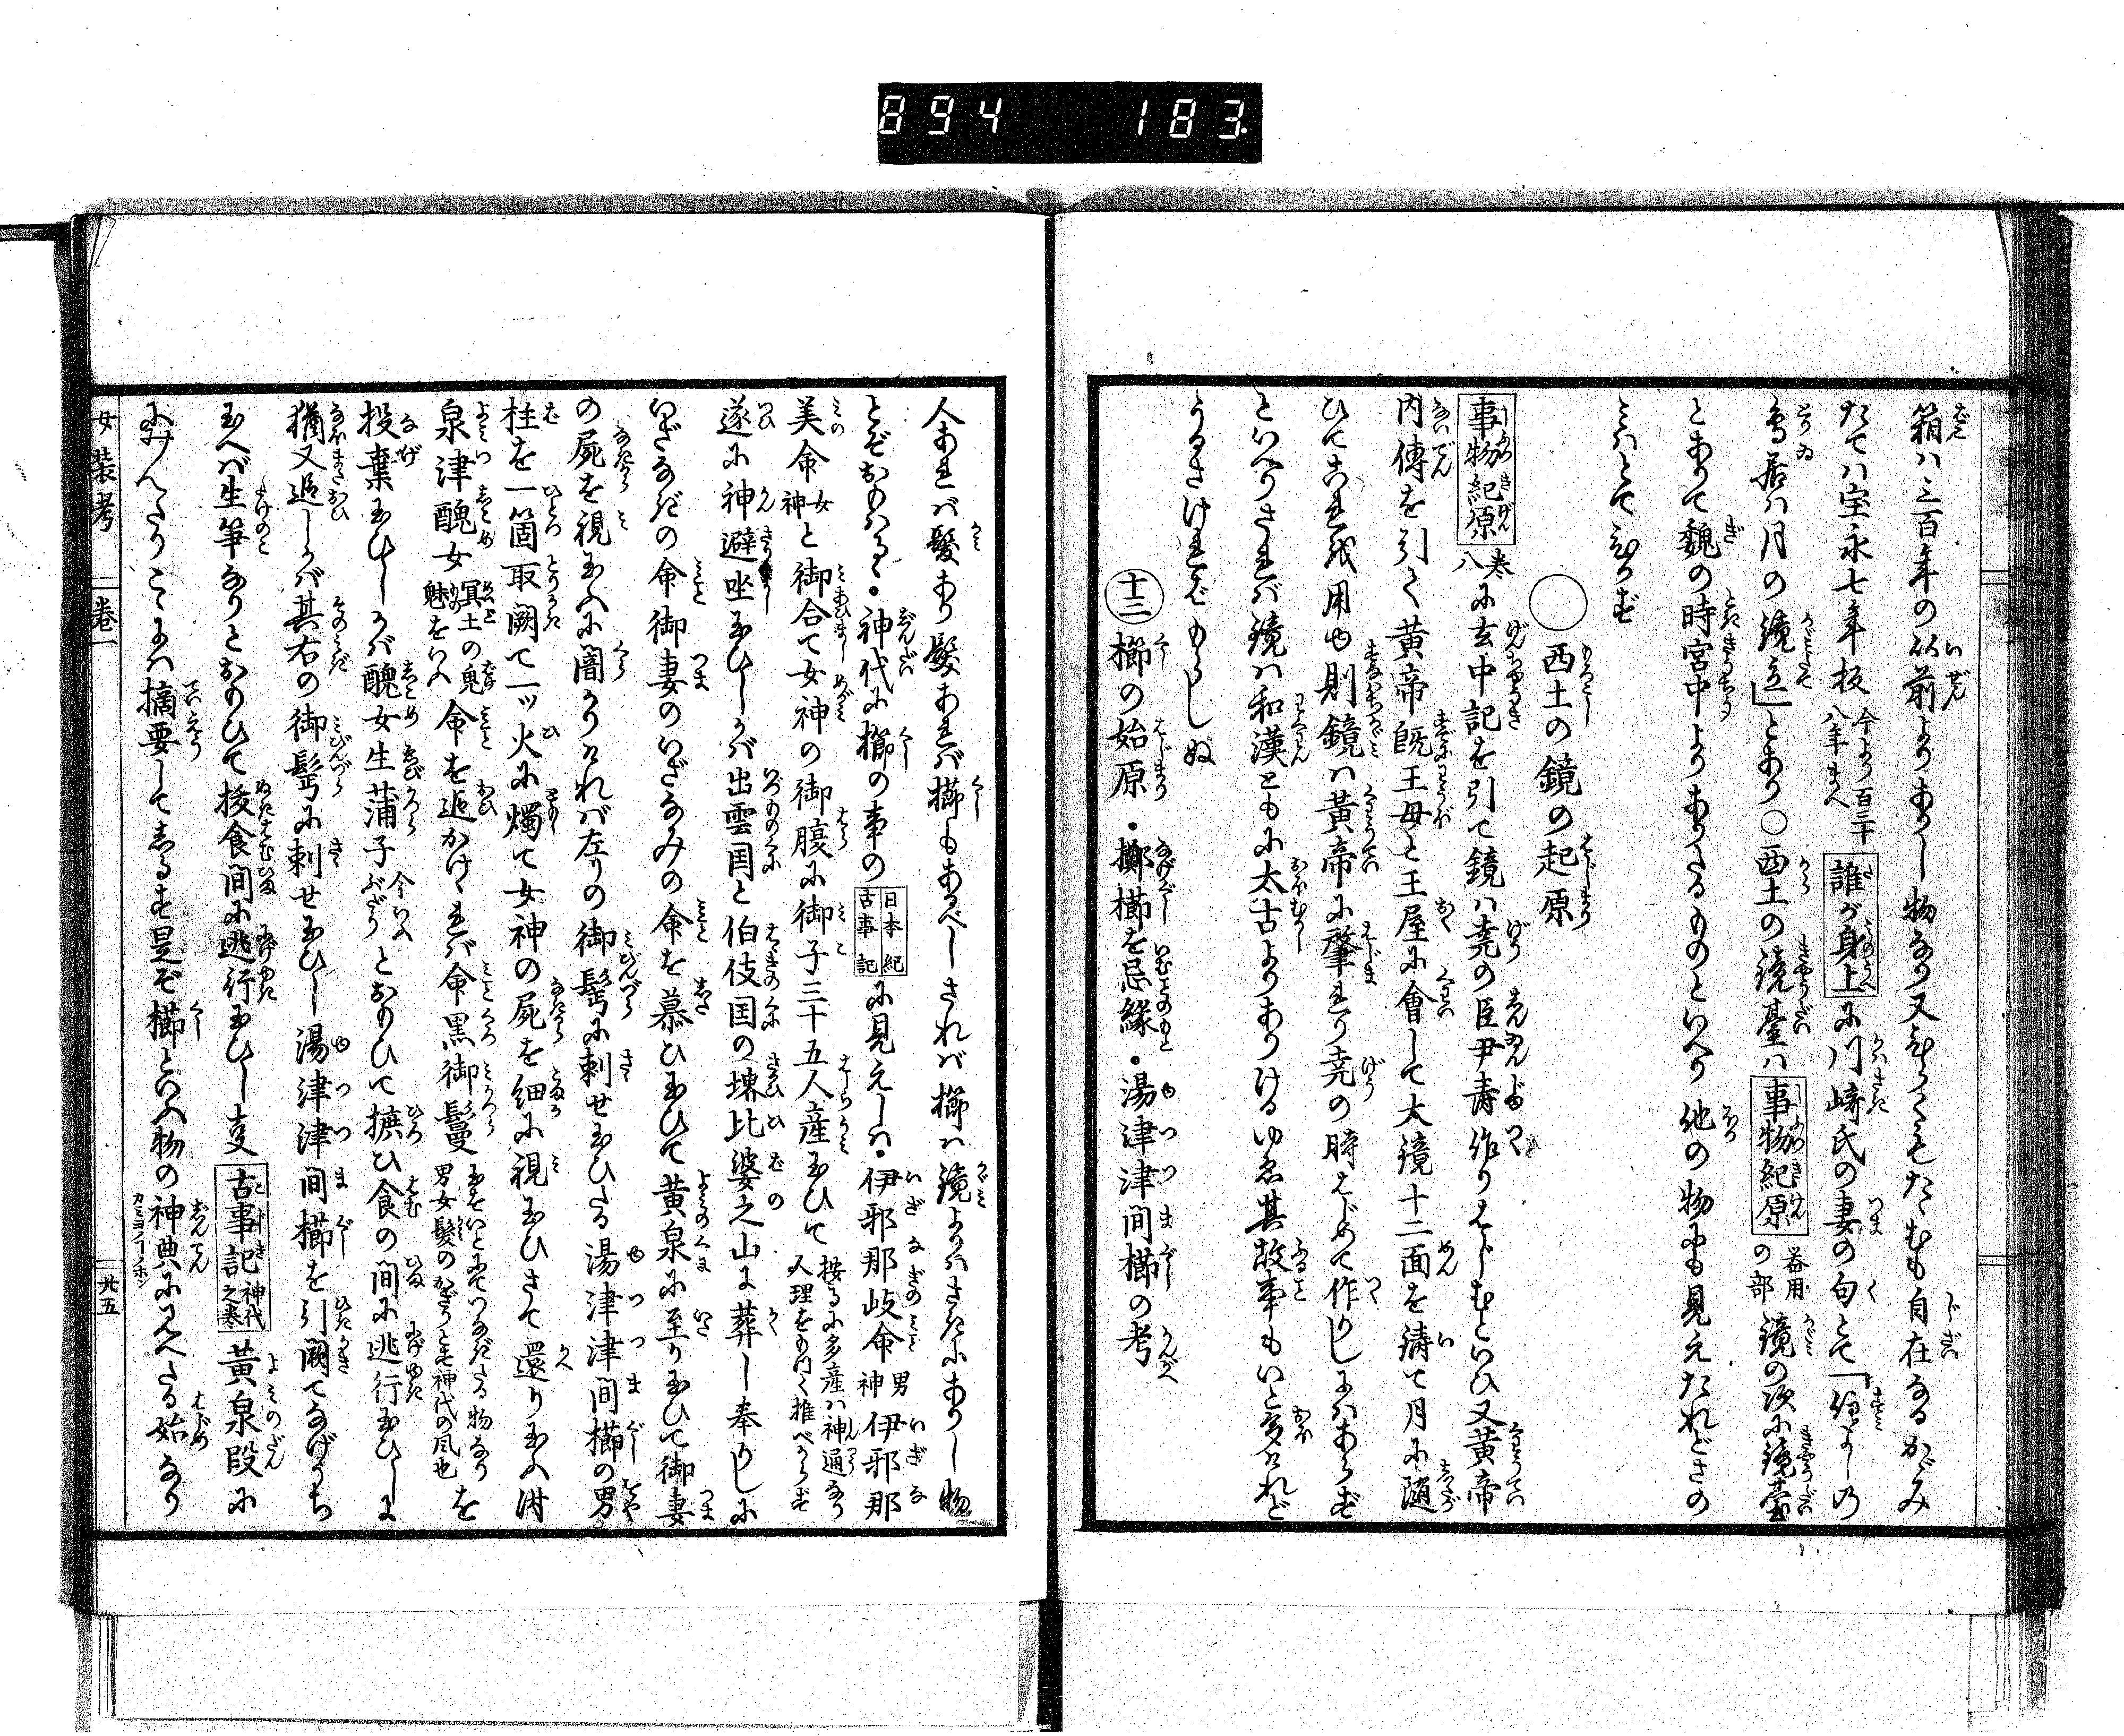 894 183
箱ハ三百年の以前よりありし物なり又ひらくもたゝむも自在なるかゞみ
たてハ宝永七年板今より百三十八年まへ誰が身上に川崎氏の妻の句とて「
鳥居ハ月の鏡立」とあり○西土の鏡臺ハ事物紀原器用の部鏡の次に鏡臺
とありて魏の時宮中よりありたるものといへり他の物にも見えたれどさの
みハとてひかず
○西土の鏡の起原
事物紀原八巻に玄中記を引て鏡ハ堯の臣尹壽作りはじむといひ又黄帝
内傳を引く黄帝既王母と王屋に會して大鏡十二面を鋳て月に随
ひてこれを用ゆ則鏡ハ黄帝に肇れり堯の時はじめて作りしにハあらず
といへりされバ鏡ハ和漢ともに太古よりありけるゆゑ其故事もいと多けれど
うるさけれバもらしぬ
十二 櫛の始原・擲櫛を忌縁・湯津津間櫛の考
人あれバ髪あり髪あれバ櫛もあるべしされバ櫛ハ鏡よりハさきにありし物
とぞおもハるゝ・神代に櫛の事の日本紀古事記に見えしハ・伊邪那岐命男神伊邪那
美命女神と御合て女神の御腹に御子三十五人産玉ひて按るに多産ハ神通なり人理をもつて推べからず
遂に神避坐玉ひしかバ出雲国と伯伎国の堺比婆之山に葬し奉りしに
いざなぎの命御妻のいざなみの命を慕ひ玉ひて黄泉に至り玉ひて御妻
の屍を視玉ふに闇かりけれバ左りの御髻に刺せ玉ひたる湯津津間櫛の男
柱を一箇取闕て一ッ火に燭て女神の屍を細に視玉ひさて還り玉ふ時
泉津醜女冥土の鬼魅をいふ命を追かけゝれバ命黒御鬘玉をいとにてつなぎたる物なり男女髪のかざりとせ神代の風也を
投棄玉ひしかバ醜女生蒲子今いふぶだうとおもひて摭ひ食の間に逃行玉ひしに
猶又追しかバ其右の御髻に刺せ玉ひし湯津津間櫛を引闕てなげうち
玉へバ生笋なりとおもひて抜食間に逃行玉ひし事古事記神代之巻黄泉段に
みえたりこゝにハ摘要してしるす是ぞ櫛といふ物の神典にみへたる始なり
女装考 巻一 廿五